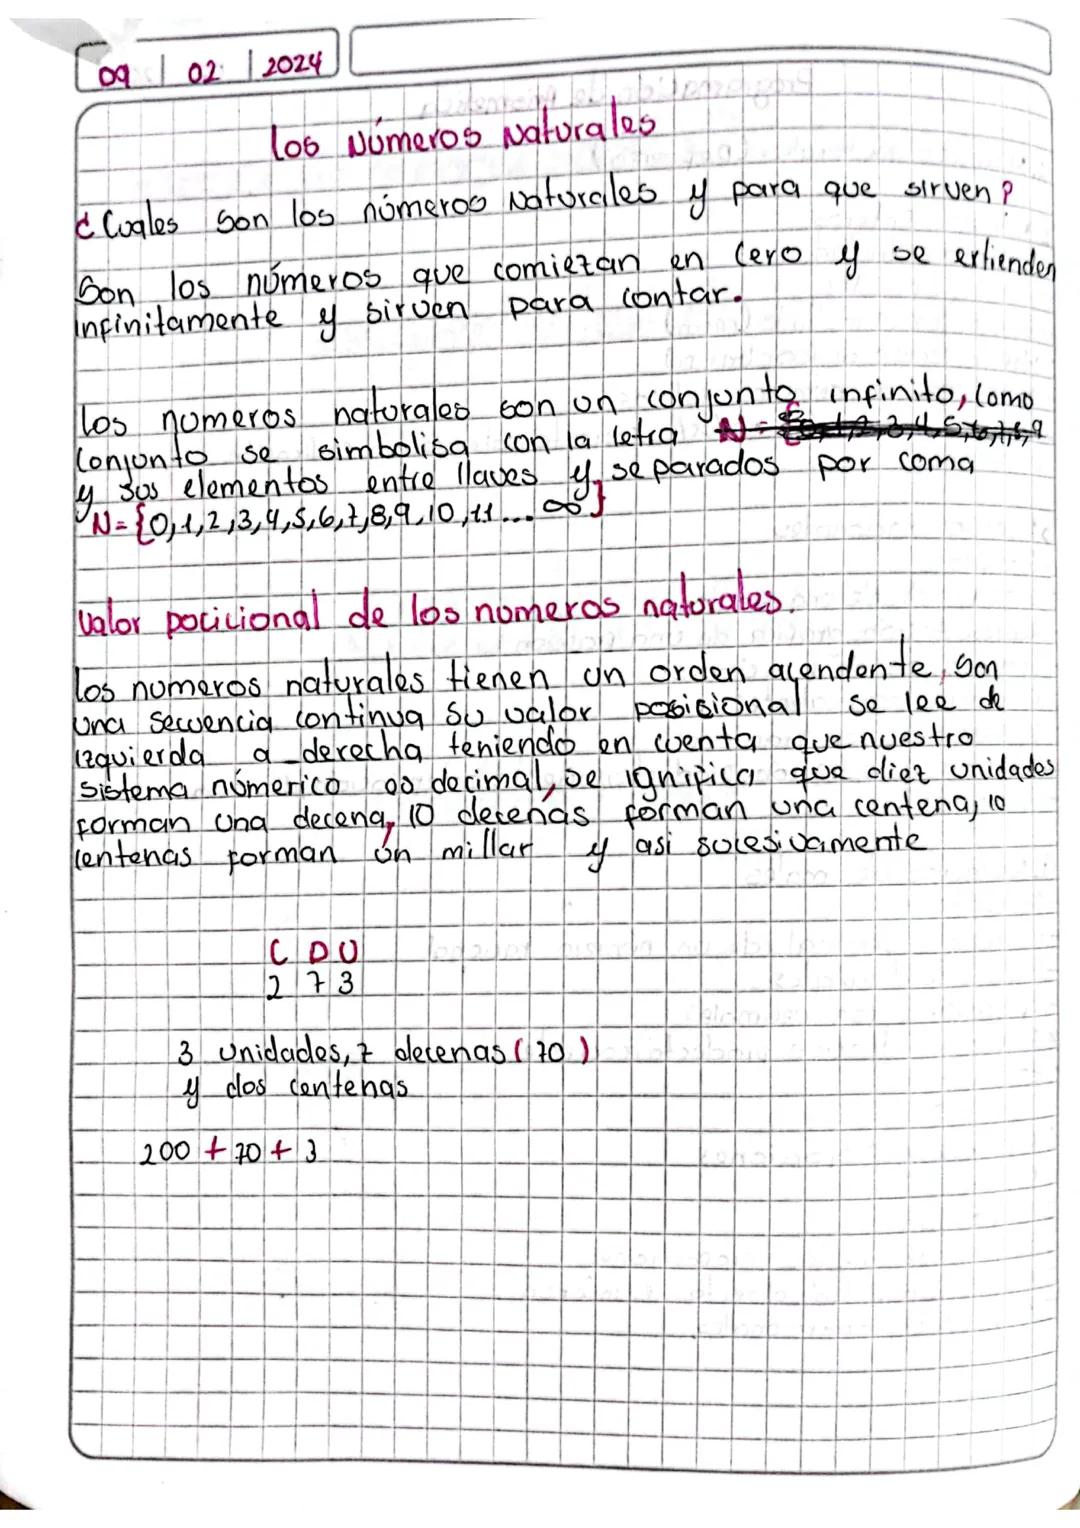 09 | 02 | 2024
los Números Naturales
¿Cuales son los números Naturales y para que sirven?
Son los números que comiezan en Cero y se extienden
infinitamente y sirven para contar.
los numeros naturales son un conjunto infinito, Como
Conjunto se simbolisa con la letra
y sus elementos entre llaves y separados por coma
N={0,1,2,3,4,5,6,7,8,9,10,11... ∞}
Valor pocicional de los numeros naturales.
los numeros naturales tienen un orden acendente, son
una secuencia continua su valor posisional se lee de
izquierda a derecha teniendo en cuenta que nuestro
sistema númerico es decimal, se ignifica que diez unidades
forman una decena, 10 decenas forman una centena, 10
centenas forman un millar y asi sucesivamente
C D U
2 7 3
3 unidades, 7 decenas (70)
y dos centenas
200 + 70 + 3